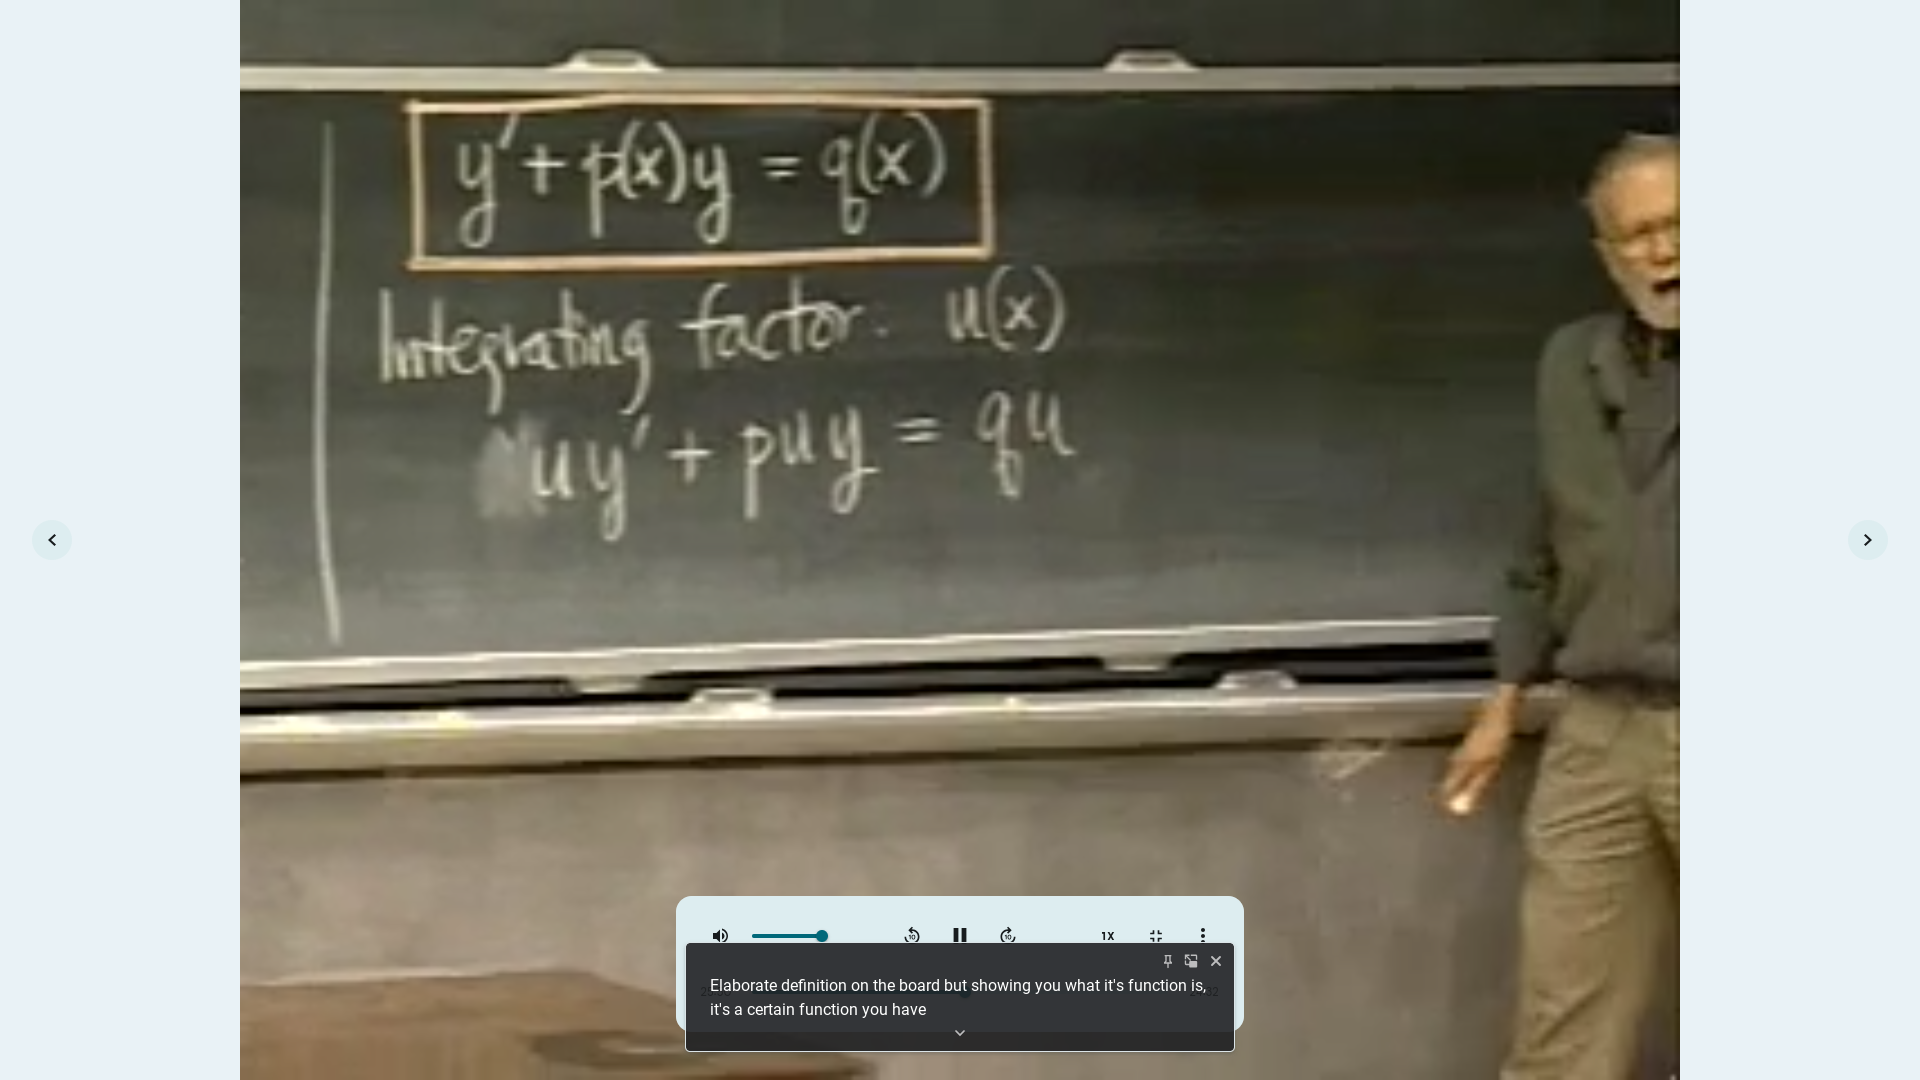 y' + p(x)y = q(x)
Integrating factor: u(x)
uy' + puy = qu
1X
Elaborate definition on the board but showing you what it's function is,
it's a certain function you have